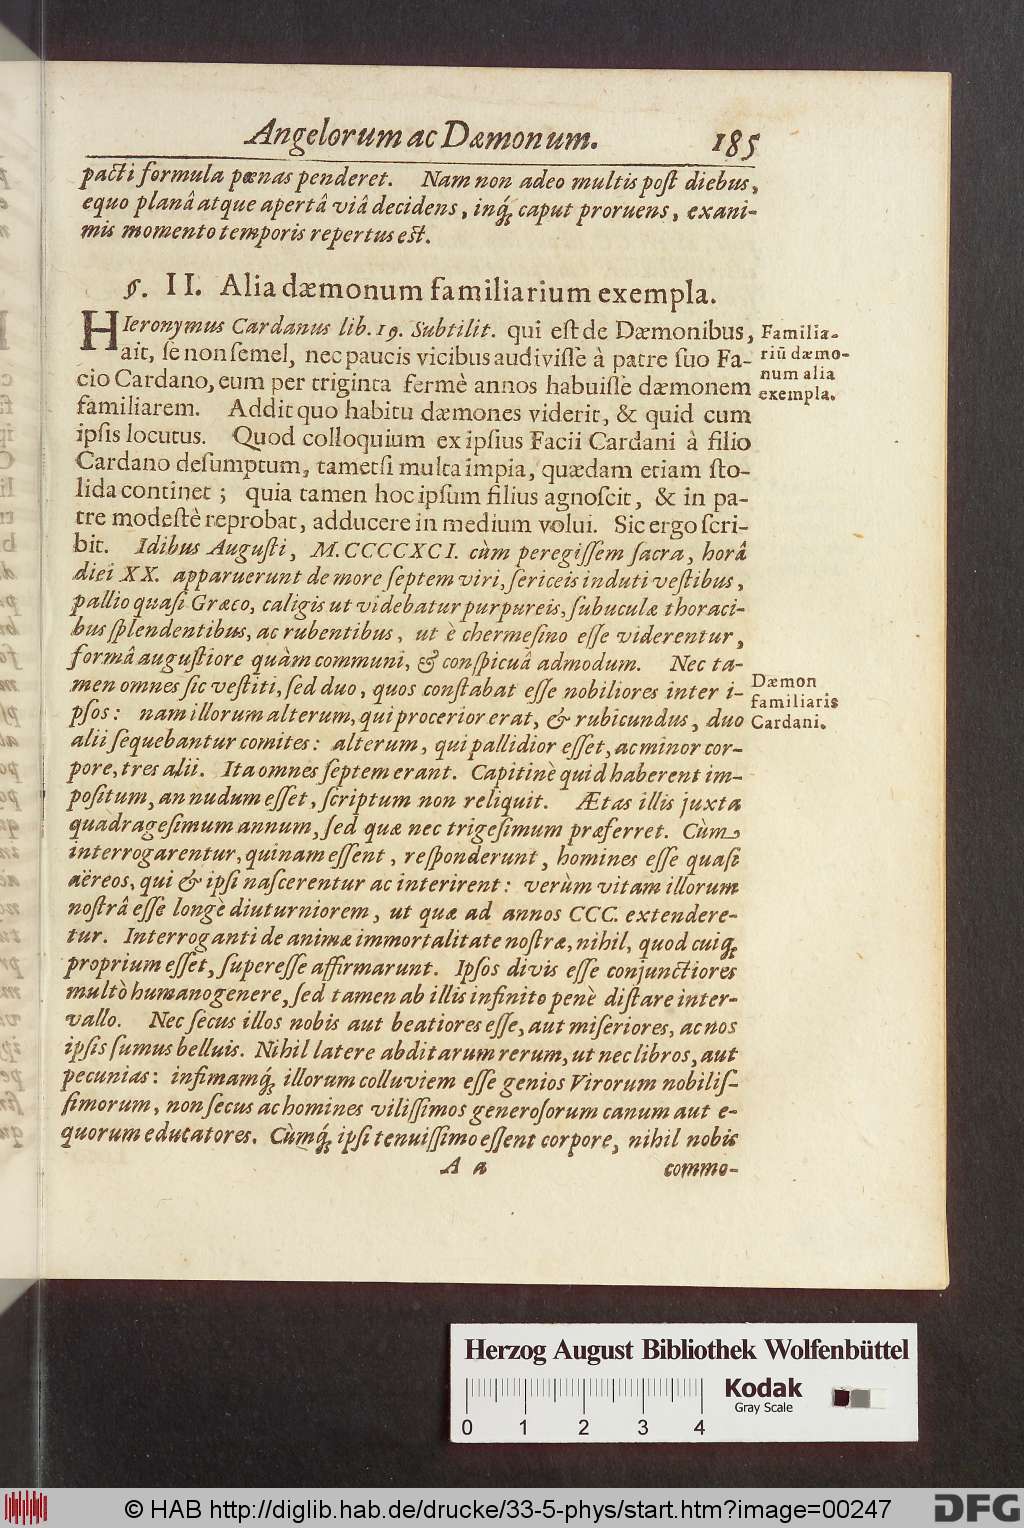 Angelorum ac Dæmonum. 185
pacti formula pœnas penderet. Nam non adeo multis post diebus,
equo planâ atque apertâ viâ decidens, inq́; caput proruens, exani-
mis momento temporis repertus est.
§. II. Alia dæmonum familiarium exempla.
HIeronymus Cardanus lib. 19. Subtilit. qui est de Dæmonibus,
ait, se non semel, nec paucis vicibus audivisse à patre suo Fa-
cio Cardano, eum per triginta fermè annos habuisse dæmonem
familiarem. Addit quo habitu dæmones viderit, & quid cum
ipsis locutus. Quod colloquium ex ipsius Facii Cardani à filio
Cardano desumptum, tametsi multa impia, quædam etiam sto-
lida continet; quia tamen hoc ipsum filius agnoscit, & in pa-
tre modestè reprobat, adducere in medium volui. Sic ergo scri-
bit. Idibus Augusti, M.CCCCXCI. cùm peregissem sacra, horâ
diei XX. apparuerunt de more septem viri, sericeis induti vestibus,
pallio quasi Græco, caligis ut videbatur purpureis, subuculæ thoraci-
bus splendentibus, ac rubentibus, ut è chermesino esse viderentur,
formâ augustiore quàm communi, & conspicuâ admodum. Nec ta-
men omnes sic vestiti, sed duo, quos constabat esse nobiliores inter i-
psos: nam illorum alterum, qui procerior erat, & rubicundus, duo
alii sequebantur comites: alterum, qui pallidior esset, ac minor cor-
pore, tres alii. Ita omnes septem erant. Capitinè quid haberent im-
positum, an nudum esset, scriptum non reliquit. Ætas illis juxta
quadragesimum annum, sed quæ nec trigesimum præferret. Cùm
interrogarentur, quinam essent, responderunt, homines esse quasi
aëreos, qui & ipsi nascerentur ac interirent: verùm vitam illorum
nostrâ esse longè diuturniorem, ut quæ ad annos CCC. extendere-
tur. Interroganti de animæ immortalitate nostræ, nihil, quod cuiq;
proprium esset, superesse affirmarunt. Ipsos divis esse conjunctiores
multò humano genere, sed tamen ab illis infinito penè distare inter-
vallo. Nec secus illos nobis aut beatiores esse, aut miseriores, ac nos
ipsis sumus belluis. Nihil latere abditarum rerum, ut nec libros, aut
pecunias: infimamq́; illorum colluviem esse genios Virorum nobilis-
simorum, non secus ac homines vilissimos generosorum canum aut e-
quorum educatores. Cùmq́; ipsi tenuissimo essent corpore, nihil nobis
A a commo-
Familia-
riũ dæmo-
num alia
exempla.
Dæmon
familiaris
Cardani.
Herzog August Bibliothek Wolfenbüttel
Kodak
Gray Scale
0 1 2 3 4
© HAB http://diglib.hab.de/drucke/33-5-phys/start.htm?image=00247
DFG